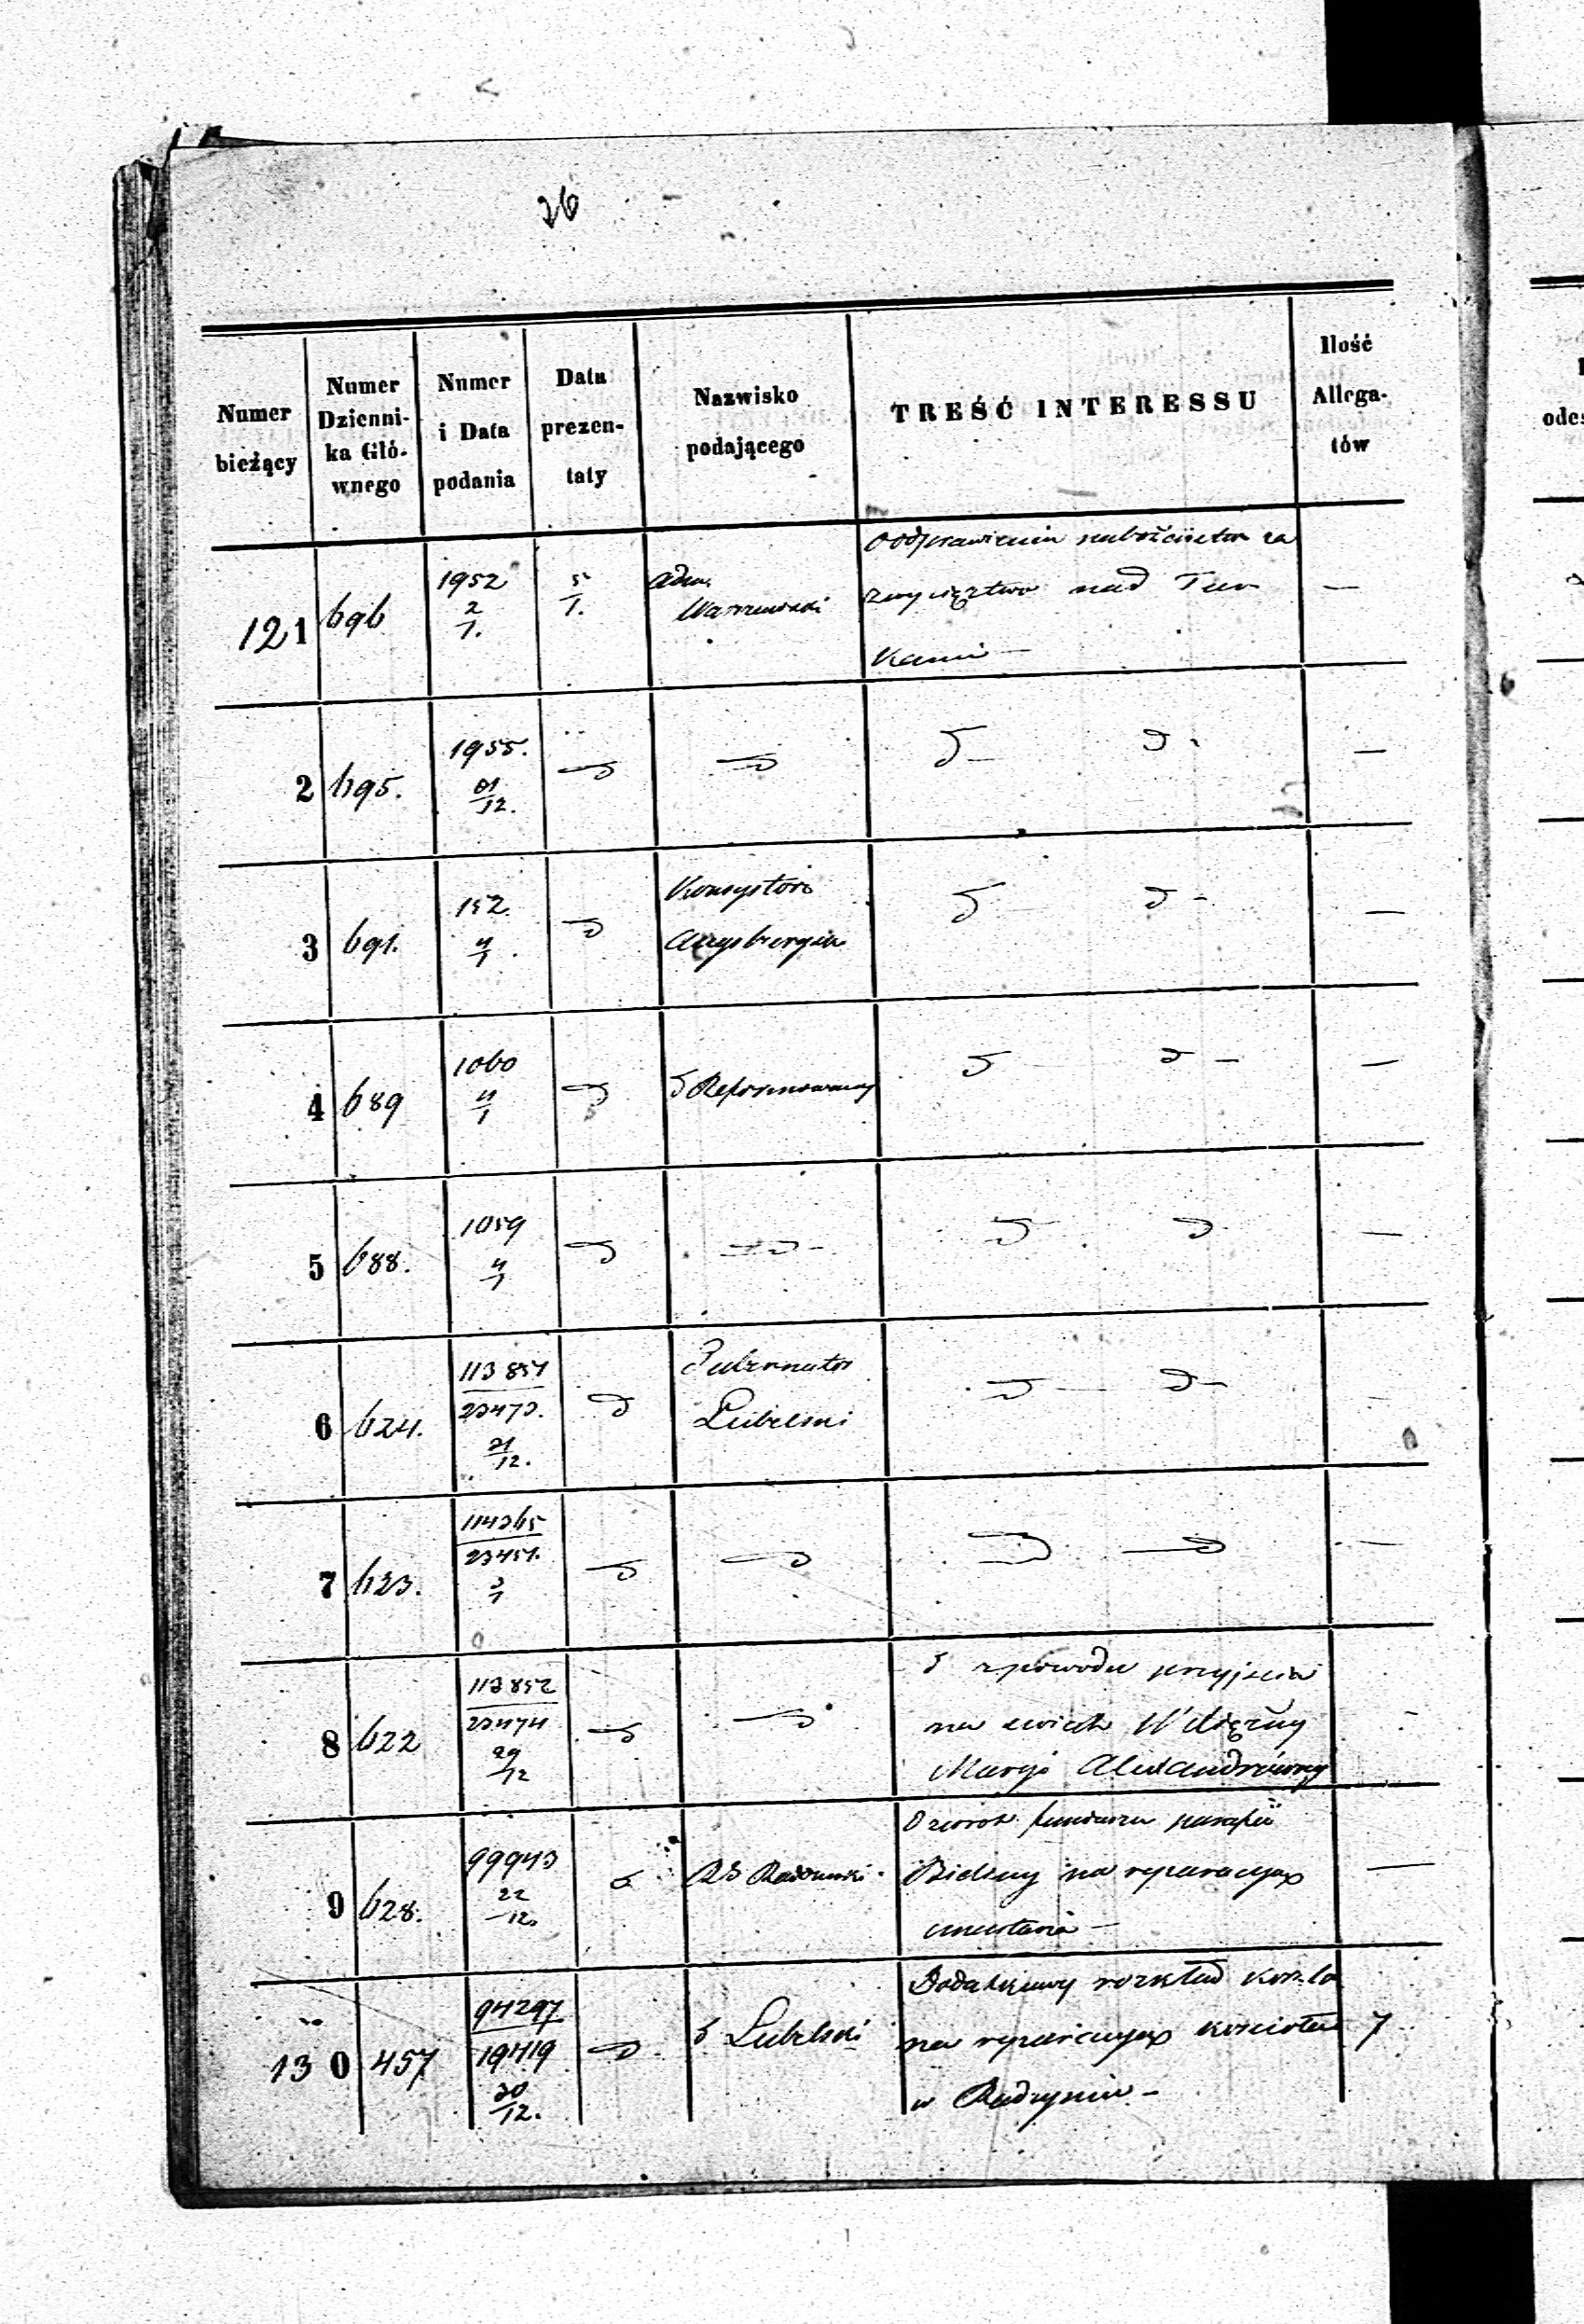 26
Numer bieżący
Numer Dzienni-ka Głó-wnego
Numer i Data podania
Data prezen-taty
Nazwisko podającego
TREŚĆ INTERESSU
Ilość Allega-tów
121 696 1952 2/1. 5/1. Adm. Warszawski
O odprawieniu nabożeństw za
zwycięztwo nad Tur
kami —
—
2 695. 1955. 31/12. —
3 691. 152. 4/1. Konsystorz
Augsburgski —
4 689 1060 4/1 Reformowany —
5 688. 1059 4/1 —
6 624. 113851 23473. 31/12. Gubernator
Lubelski
7 623. 114365 23451. 3/1 —
8 622 113852 23474 29/12
z powodu przyjścia
na świat W. Księżny
Maryi Alexandrówny
9 628. 99943 22/12. RG Radomski
O zwrot funduszu parafii
Bieliny na reparacyą
cmentarza —
—
130 457 94297 19419 30/12. Lubelski
Dodatkowy rozkład kosztów
na reparacyą kościoła
w Radzyniu —
7